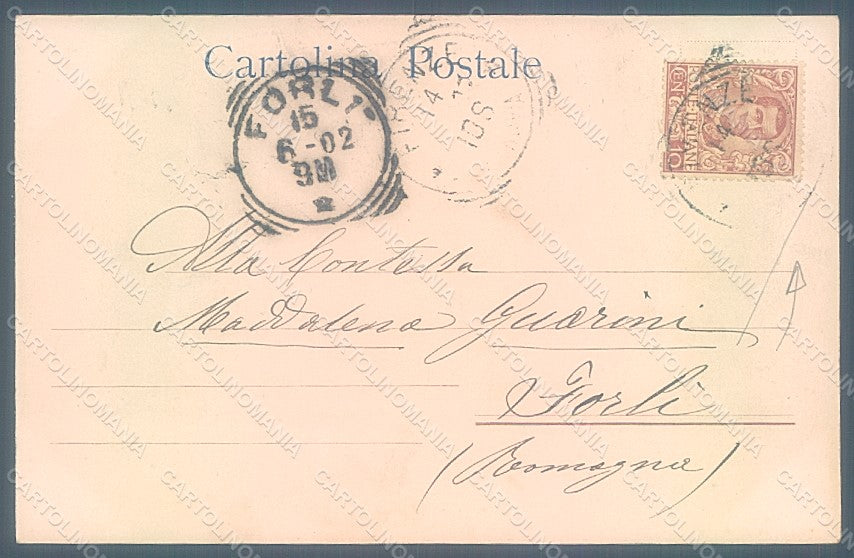 Cartolina Postale
FORLI
15
6-02
9M
FIRENZE
14
10S
CENT. 10
Alla Contessa
Maddalena Guarini
Forlì
(Romagna)
CARTOLINOMANIA